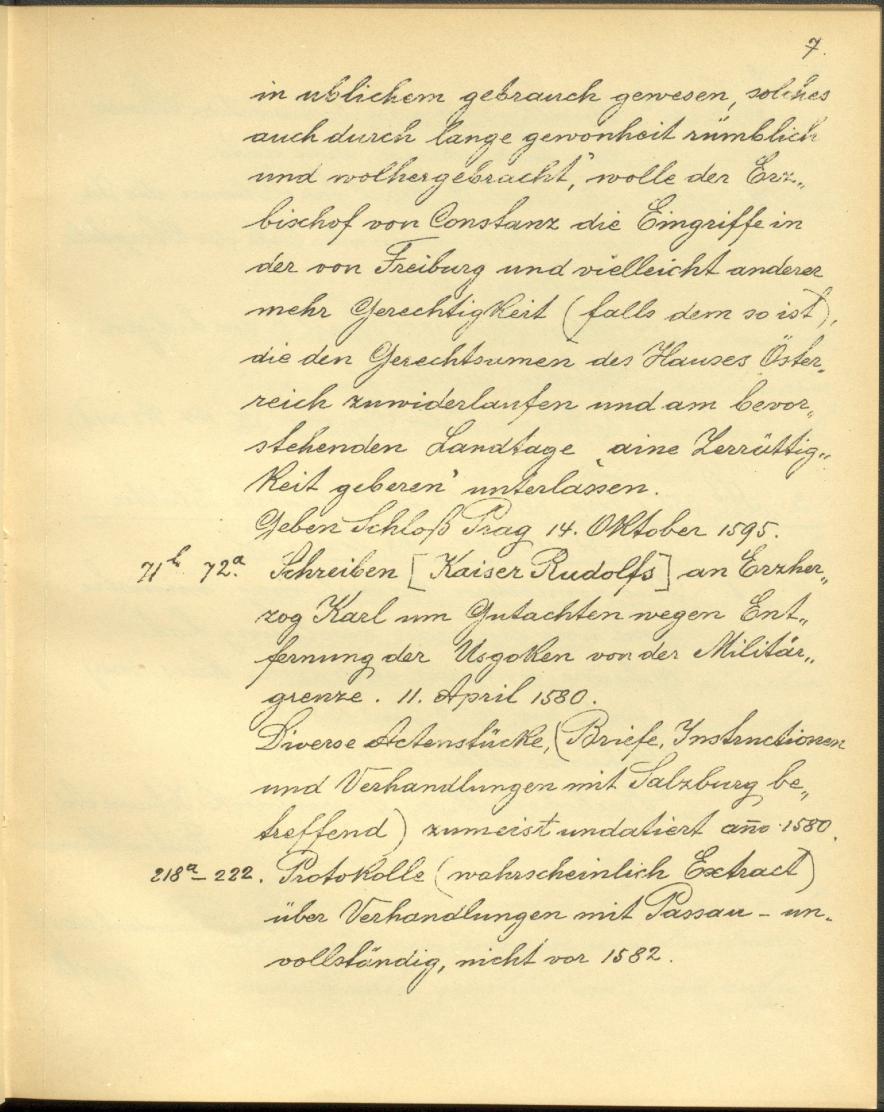 7.
in ublichem gebrauch gewesen, solches
auch durch lange gewonheit rümblich
und wolhergebracht", wolle der Erz„
bischof von Constanz die Eingriffe in
der von Freiburg und vielleicht anderer
mehr Gerechtigkeit (falls dem so ist),
die den Gerechtsumen des Hauses Öster„
reich zuwiderlaufen und am bevor„
stehenden Landtage „aine Zerrüttig„
keit geberen" unterlassen.
Geben Schloß Prag 14. Oktober 1595.
71b 72a. Schreiben [Kaiser Rudolfs] an Erzher„
zog Karl um Gutachten wegen Ent„
fernung der Usgoken von der Militär„
grenze. 11. April 1580.
Diverse Actenstücke, (Briefe, Instructionen
und Verhandlungen mit Salzburg be„
treffend) zumeist undatiert año 1580.
218a – 222. Protokolle (wahrscheinlich Extract)
über Verhandlungen mit Passau – un„
vollständig, nicht vor 1582.